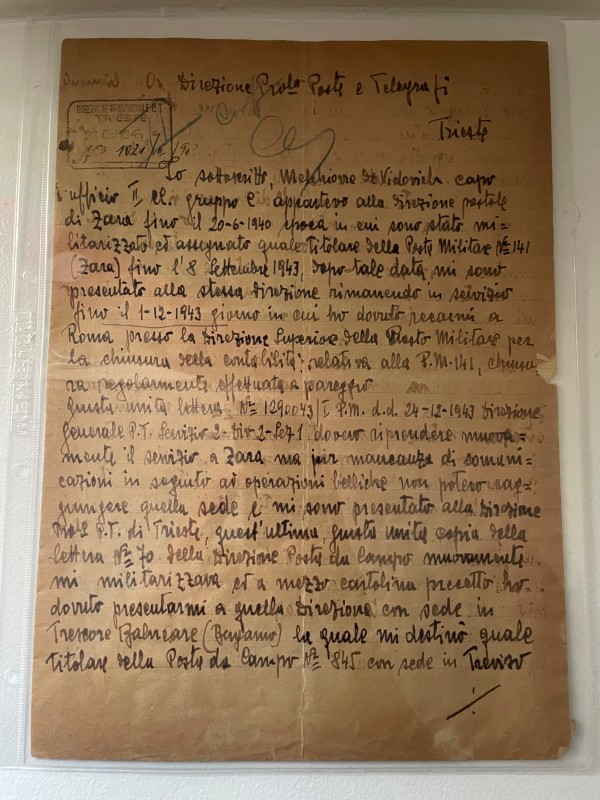 On Direzione Prole Poste e Telegrafi
DIREZIONE PROVINCIALE P.T.
TRIESTE
1021
Trieste
Io sottoscritto, Melchiorre de Vidovich capo
ufficio II cl. gruppo C appartevo alla direzione postale
di Zara fino il 20-6-1940 epoca in cui sono stato mi=
litarizzato ed assegnato quale titolare della Posta Militare Nº 141
(Zara) fino l'8 Settembre 1943, dopo tale data mi sono
presentato alla stessa direzione rimanendo in servizio
fino il 1-12-1943 giorno in cui ho dovuto recarmi a
Roma presso la Direzione Superiore della Posta Militare per
la chiusura della contabilità relativa alla P.M. 141, chiusu=
ra regolarmente effettuata a pareggio
Giusta unita lettera Nº 1290043/I P.M. d.d. 24-12-1943 Direzione
Generale P.T. Servizio 2-Div-2-Sez 1 dovevo riprendere nuova=
mente il servizio a Zara ma per mancanza di comuni=
cazioni in seguito ad operazioni belliche non potevo rag=
giungere quella sede e mi sono presentato alla Direzione
Prole P.T. di Trieste, quest'ultima, giusta unita copia della
lettera Nº 70 della Direzione Poste da Campo nuovamente
mi militarizzava ed a mezzo cartolina precetto ho
dovuto presentarmi a quella Direzione con sede in
Trescore Balneare (Bergamo) la quale mi destinò quale
titolare della Posta da Campo Nº 845 con sede in Treviso